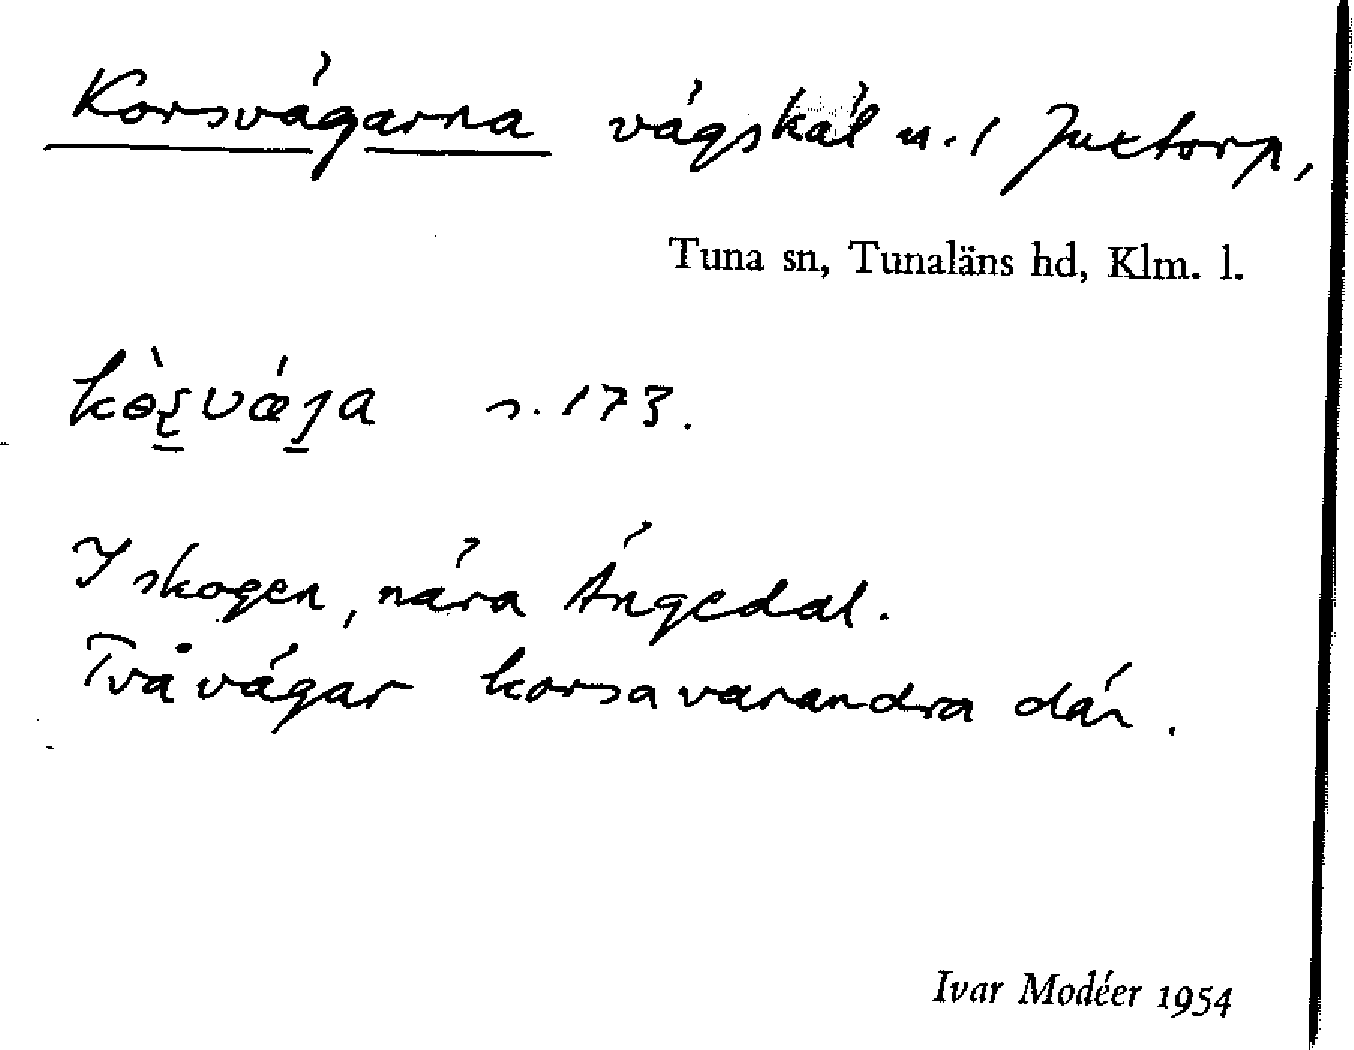 Korsvägarna vägskäl u. 1 Juxtorp,
Tuna sn, Tunaläns hd, Klm. l.
s. 173.
I skogen, nära Ängedal.
Två vägar korsa varandra där.
Ivar Modéer 1954